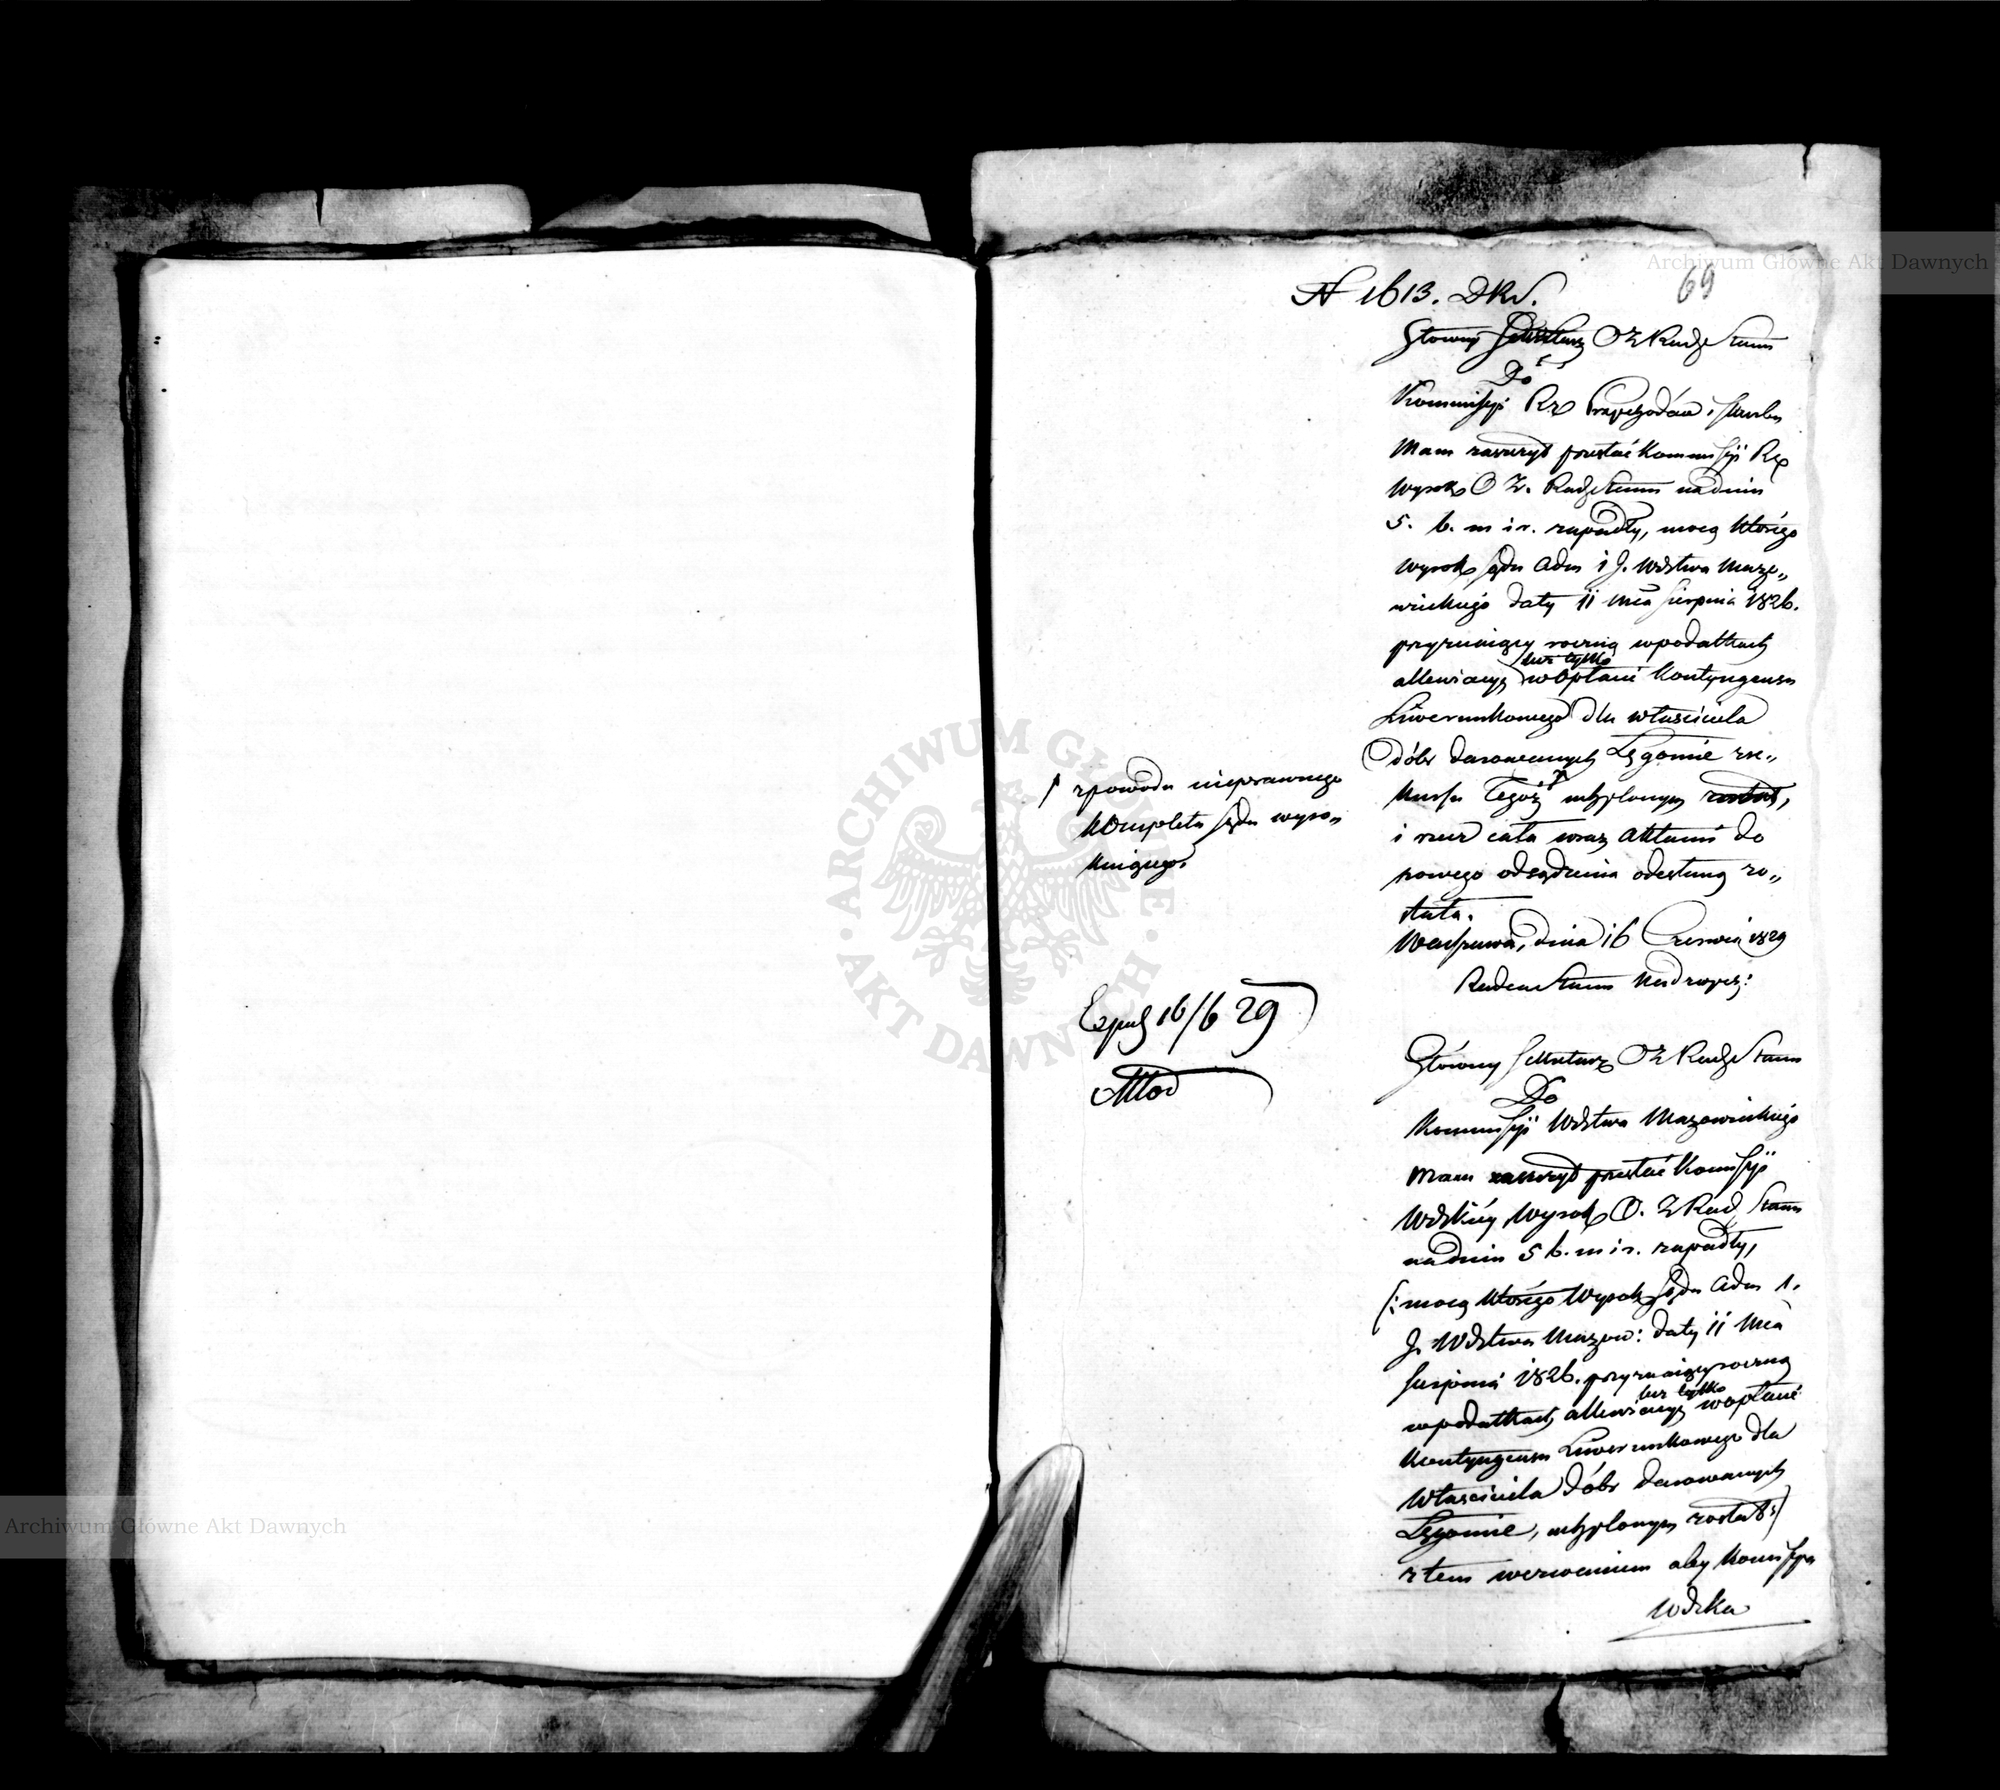 N 1613. DKS.
69
Główny Sekretarz O Z Rady Stanu
Do
Kommissyi Rz Przychodów i Skarbu
Mam zaszczyt przesłać Kommissyi Rz
Wyrok O Z. Rady Stanu na dniu
5. b. m i r. zapadły, mocą którego
wyrok Sądu Adm 1 J. Wdztwa Mazo„
wieckiego daty 11 Mca Sierpnia 1826.
przyznający roczną w podatkach
allewiacyą bez tylko w opłacie Kontyngensu
Liwerunkowego dla właściciela
Dóbr darowanych Łęgonie re„
kursu tegoż uchylonym został,
i rzecz cała wraz Aktami do
nowego osądzenia odesłaną zo„
stała.
Warszawa, dnia 16 Czerwca 1829
Radca Stanu Nadzwycz:
/ z powodu nieprawnego
Kompletu Sądu wyro„
kuiącego.
Exped 16/6 29
Główny Sekretarz O Z Rady Stanu
Do
Kommissyi Wdztwa Mazowieckiego
Mam zaszczyt przesłać Komissyi
Wdzkiéy Wyrok O. Z Rad Stanu
na dniu 5 b. m i r. zapadły,
/: mocą którego Wyrok Sądu Adm 1.
J. Wdztwa Mazow: daty 11 Mca
Sierpnia 1826. przyznający roczną
w podatkach allewiacyą bez tylko w opłacie
Kontyngensu Liwerunkowego dla
Właściciela Dóbr darowanych
Łęgonie, uchylonym został :/
z tem wezwaniem aby Komissya
Wdzka
Archiwum Główne Akt Dawnych
ARCHIWUM GŁÓWNE
· AKT DAWNYCH ·
Archiwum Główne Akt Dawnych